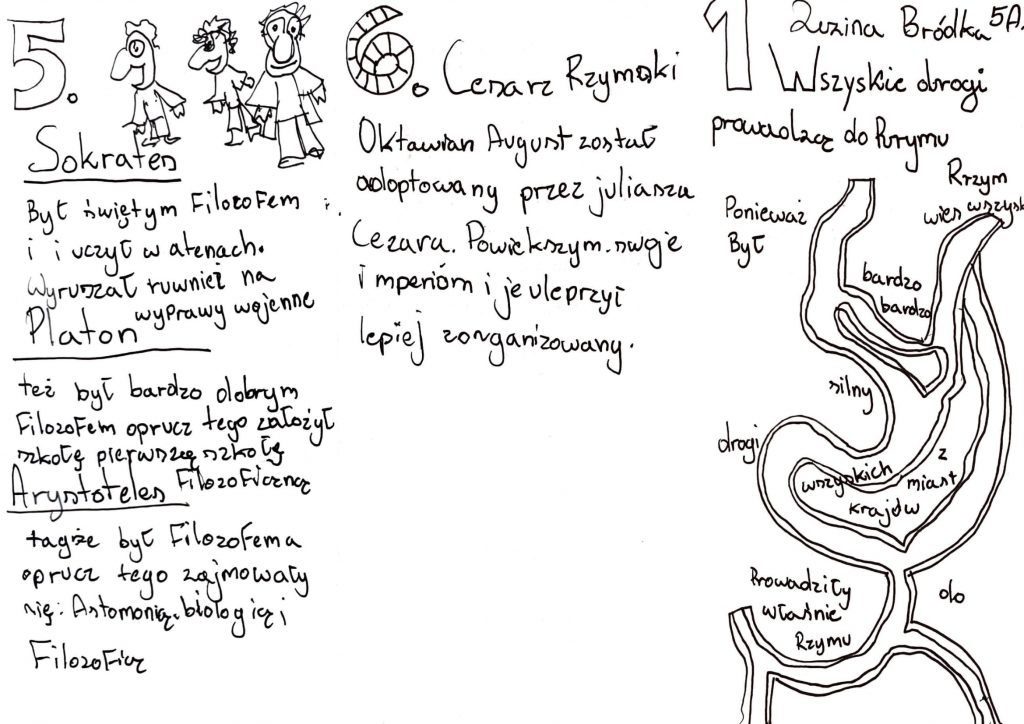 5.
Sokrates
Był świętym FilozoFem
i i uczył w atenach.
Wyruszał ruwnież na
wyprawy wojenne
Platon
też był bardzo dobrym
FilozoFem oprucz tego założył
szkołę pierwszą szkołę
FilozoFiczną
Arystoteles
tagże był FilozoFema
oprucz tego zajmowały
się: Astomonią, biologią i
FilozoFią
6. Cesarz Rzymski
Oktawian August został
adoptowany przez juliasza
Cezara. Powiekszym. swoje
imperióm i je uleprzył
lepiej zorganizowany.
1 Zuzina Bródka 5A.
Wszyskie drogi
prowadzą do Rzymu
Ponieważ
Rrzym
wies wszysk
Był
bardzo
bardzo
silny
drogi
wszyskich
z
miast
krajów
Prowadziły
do
właśnie
Rzymu